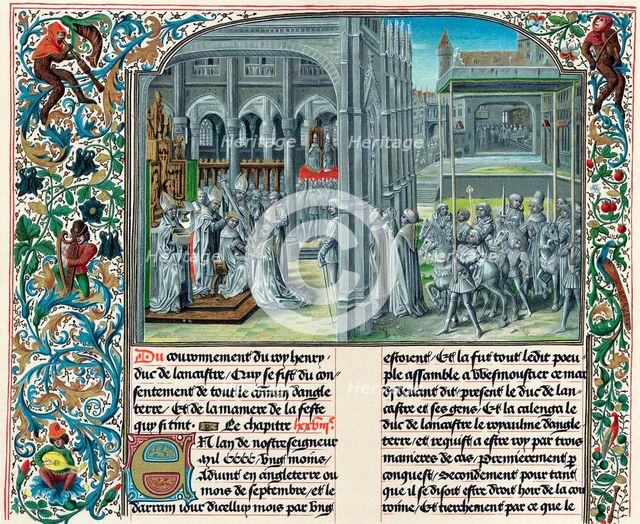 Du couronnement du roy henry
duc de lancastre / Quy se fist du con
sentement de tout le comun dangle
terre / Et de la maniere de la feste
quy si tint. Le chapitre
En lan de nostreseigneur
mil CCCC. Vngt moins /
Aduint en angleterre ou
mois de septembre / et le
darrain iour dicelluy mois par vng
estoient / Et la fut tout ledit peu
ple assamble a Wesmoustier ce mar
di deuant dit / present le duc de lan
castre et ses gens / Et la calenga le
duc de lancastre le royaulme dangle
terre / et requist a estre roy par trois
manieres de cas / Premierement p
conquest / Secondement pour tant
que il se disoit estre droit hoir de la cou
ronne / Et tiercement par ce que le
Heritage
Heritage
Heritage
Heritage
Heritage
Heritage
Heritage